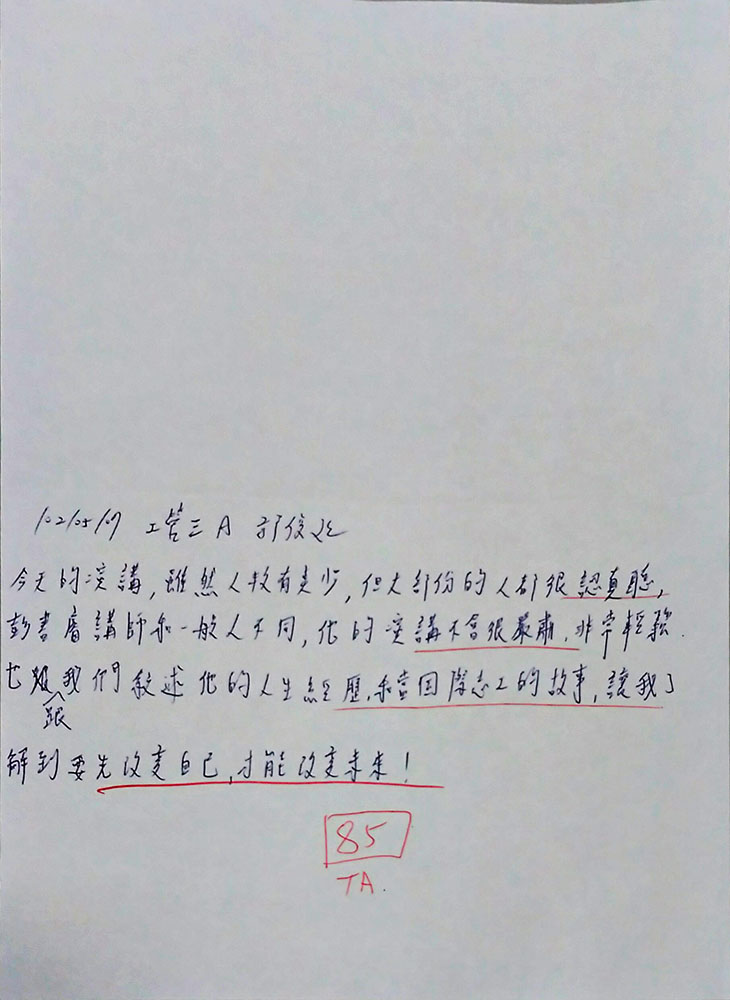 102/05/09 工管三A 郭俊
今天的演講，雖然人數有點少，但大部份的人都很認真聽，
彭書睿講師和一般人不同，他的演講不會很嚴肅，非常輕鬆.
也跟我們敘述他的人生經歷，和當国際志工的故事，讓我了
解到要先改變自己，才能改變未來！
85
TA.